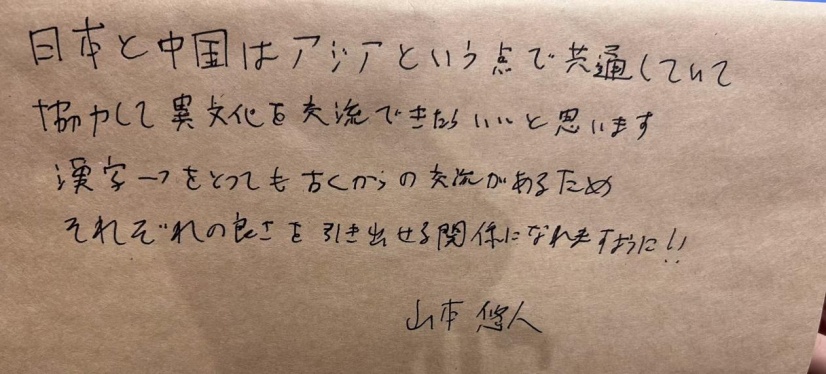 日本と中国はアジアという点で共通していて
協力して異文化を交流できたらいいと思います
漢字一つをとっても古くからの交流があるため
それぞれの良さを引き出せる関係になれますように!!
山本 悠人